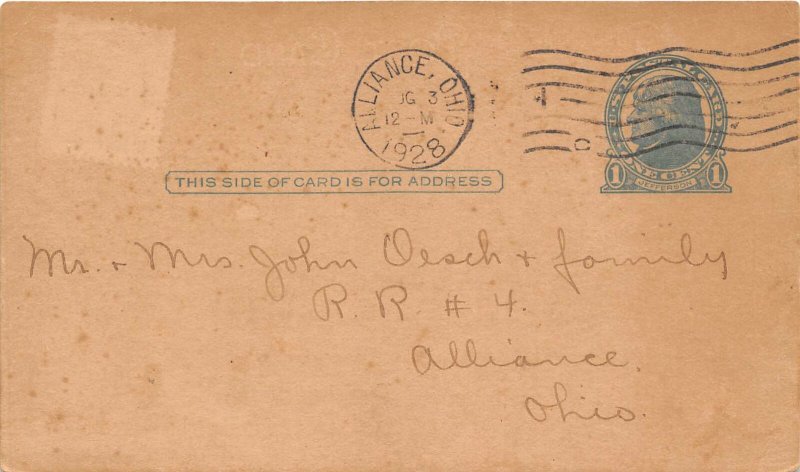 ALLIANCE, OHIO
UG 3
12-M
1928
U.S. POSTAL CARD
1 ONE CENT 1
JEFFERSON
THIS SIDE OF CARD IS FOR ADDRESS
Mr. + Mrs. John Oesch + family
R. R. # 4.
Alliance.
Ohio.